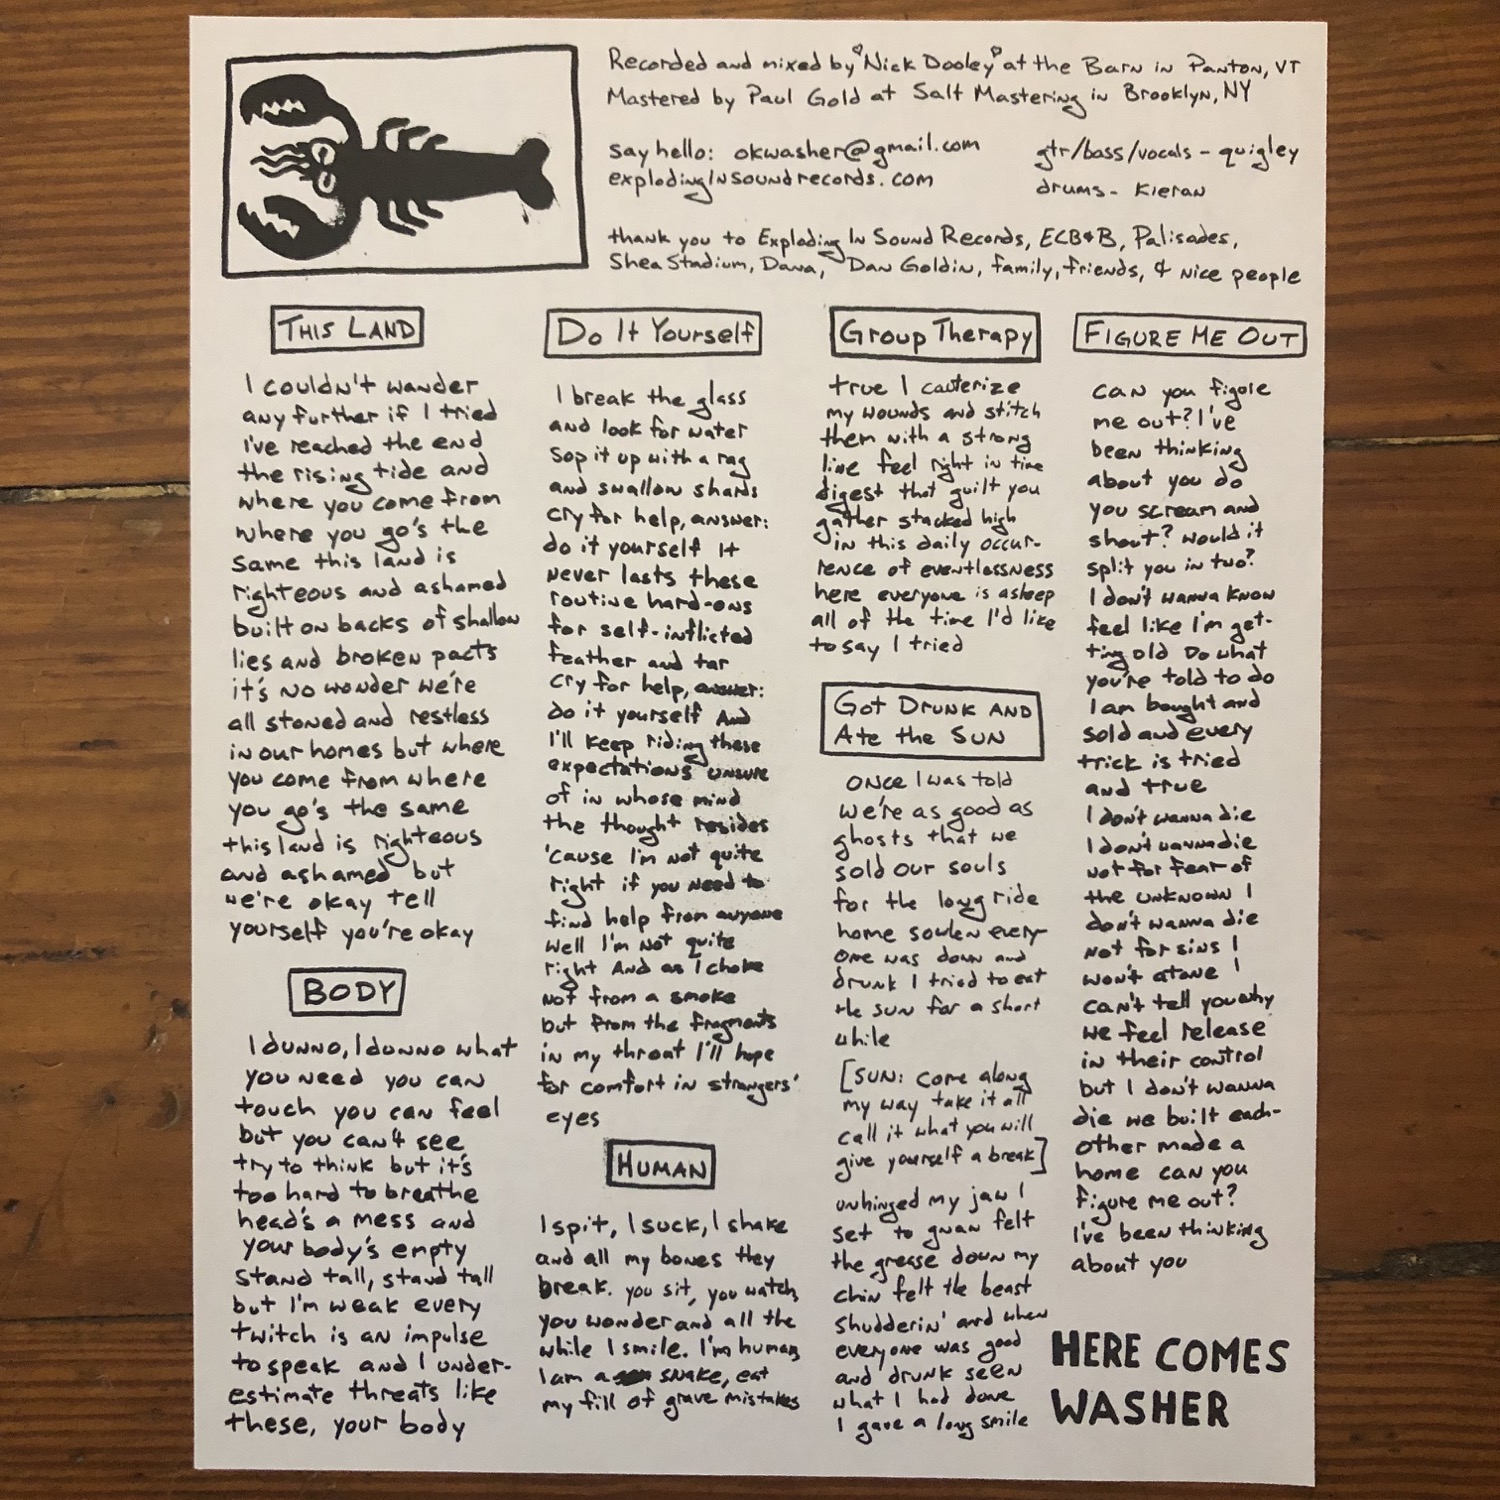 Recorded and mixed by Nick Dooley at the Barn in Panton, VT
Mastered by Paul Gold at Salt Mastering in Brooklyn, NY
say hello: okwasher@gmail.com
explodingInsoundrecords.com
gtr/bass/vocals - quigley
drums - Kieran
thank you to Exploding In Sound Records, ECB&B, Palisades,
Shea Stadium, Dana, Dan Goldin, family, friends, & nice people
THIS LAND
I couldn't wander
any further if I tried
I've reached the end
the rising tide and
where you come from
where you go's the
same this land is
righteous and ashamed
built on backs of shallow
lies and broken pacts
it's no wonder we're
all stoned and restless
in our homes but where
you come from where
you go's the same
this land is righteous
and ashamed but
we're okay tell
yourself you're okay
BODY
I dunno, I dunno what
you need you can
touch you can feel
but you can't see
try to think but it's
too hard to breathe
head's a mess and
your body's empty
stand tall, stand tall
but I'm weak every
twitch is an impulse
to speak and I under-
estimate threats like
these, your body
Do It Yourself
I break the glass
and look for water
sop it up with a rag
and swallow shards
cry for help, answer:
do it yourself It
never lasts these
routine hard-ons
for self-inflicted
feather and tar
cry for help, answer:
do it yourself And
I'll keep riding these
expectations unsure
of in whose mind
the thought resides
'cause I'm not quite
right if you need to
find help from anyone
well I'm not quite
right And as I choke
not from a smoke
but from the fragments
in my throat I'll hope
for comfort in strangers'
eyes
HUMAN
I spit, I suck, I shake
and all my bones they
break. you sit, you watch,
you wonder and all the
while I smile. I'm human,
I am a snake, eat
my fill of grave mistakes
Group Therapy
true I cauterize
my wounds and stitch
them with a strong
line feel right in time
digest that guilt you
gather stacked high
in this daily occur-
rence of eventlessness
here everyone is asleep
all of the time I'd like
to say I tried
Got Drunk AND
Ate the SUN
once I was told
we're as good as
ghosts that we
sold our souls
for the long ride
home so when every-
one was down and
drunk I tried to eat
the sun for a short
while
[SUN: come along
my way take it all
call it what you will
give yourself a break]
unhinged my jaw I
set to gnaw felt
the grease down my
chin felt the beast
shudderin' and when
everyone was good
and drunk seen
what I had done
I gave a long smile
FIGURE ME OUT
can you figure
me out? I've
been thinking
about you do
you scream and
shout? would it
split you in two?
I don't wanna know
feel like I'm get-
ting old Do what
you're told to do
I am bought and
sold and every
trick is tried
and true
I don't wanna die
I don't wanna die
not for fear of
the unknown I
don't wanna die
not for sins I
won't atone I
can't tell you why
we feel release
in their control
but I don't wanna
die we built each-
other made a
home can you
figure me out?
I've been thinking
about you
HERE COMES
WASHER